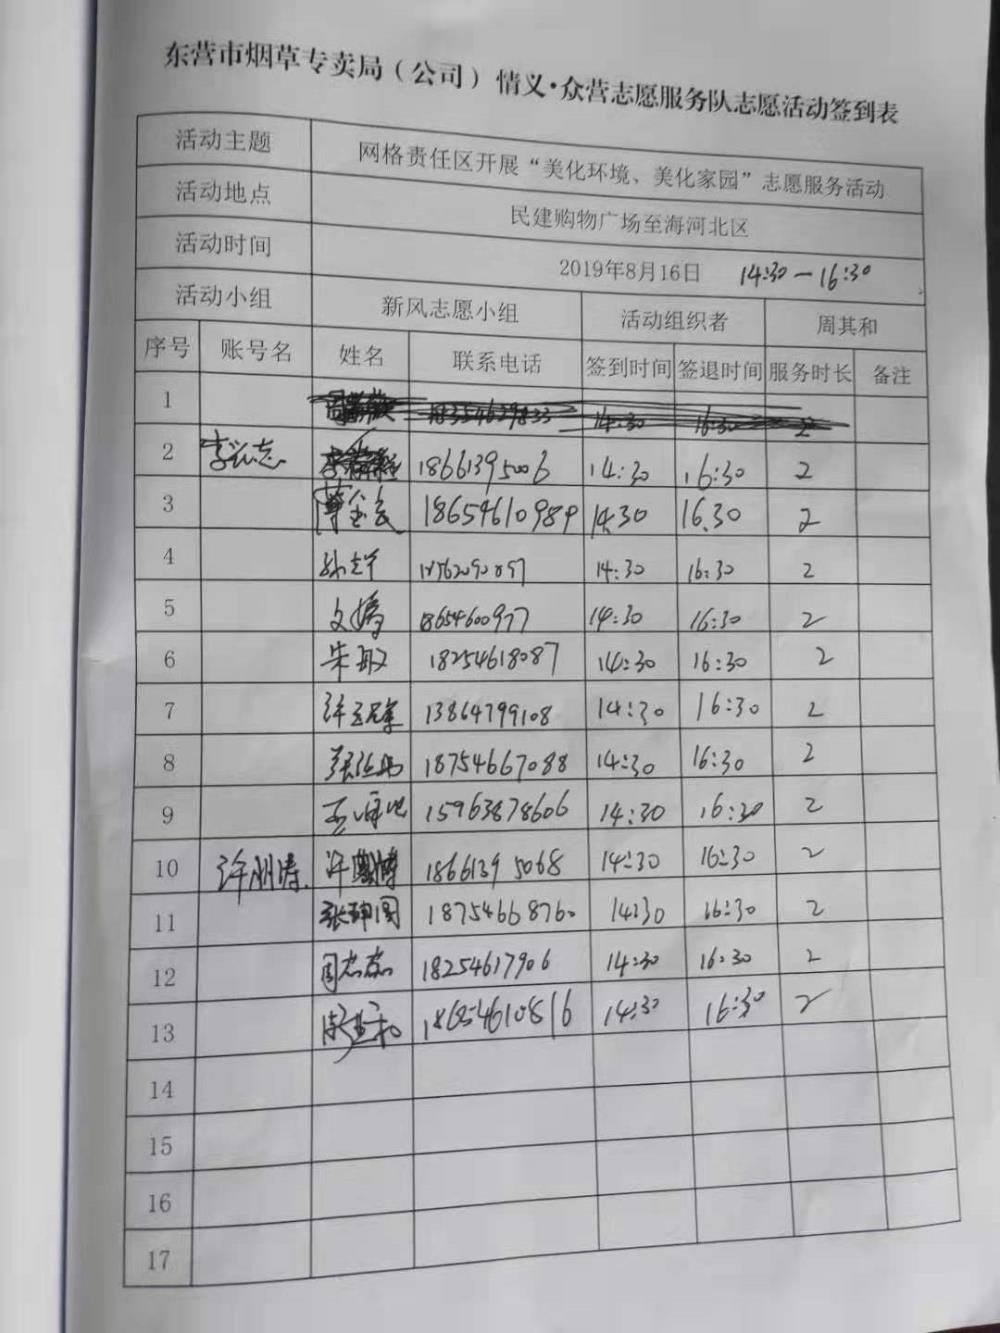 东营市烟草专卖局（公司）情义·众营志愿服务队志愿活动签到表
活动主题 网格责任区开展“美化环境、美化家园”志愿服务活动
活动地点 民建购物广场至海河北区
活动时间 2019年8月16日 14:30—16:30
活动小组 新风志愿小组 活动组织者 周其和
序号 账号名 姓名 联系电话 签到时间 签退时间 服务时长 备注
1 14:30 16:30 2
2 18661395006 14:30 16:30 2
3 18654610989 14:30 16.30 2
4 14:30 16:30 2
5 14:30 16:30 2
6 朱敏 18254618087 14:30 16:30 2
7 13864799108 14:30 16:30 2
8 18754667088 14:30 16:30 2
9 15963878606 14:30 16:30 2
10 18661395068 14:30 16:30 2
11 18754668760 14:30 16:30 2
12 周志磊 18254617906 14:30 16:30 2
13 18654610816 14:30 16:30 2
14
15
16
17